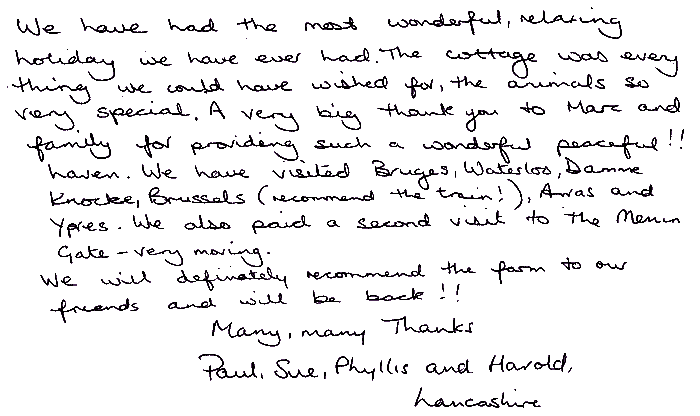 We have had the most wonderful, relaxing
holiday we have ever had. The cottage was every
thing we could have wished for, the animals so
very special. A very big thank you to Marc and
family for providing such a wonderful peaceful!!
haven. We have visited Bruges, Waterloo, Damme
Knocke, Brussels (recommend the train!), Arras and
Ypres. We also paid a second visit to the Menin
Gate - very moving.
We will definately recommend the farm to our
friends and will be back!!
Many, many Thanks
Paul, Sue, Phyllis and Harold,
Lancashire